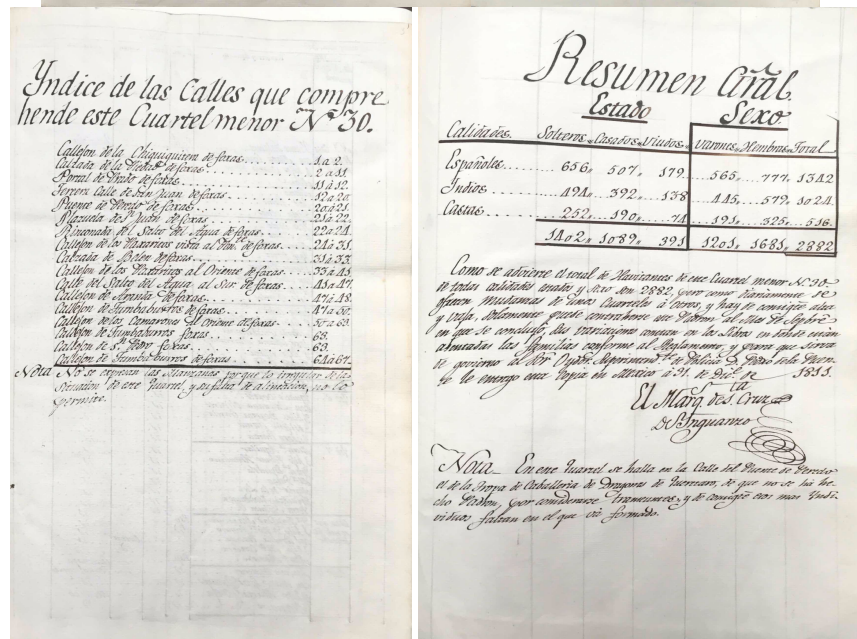 Yndice de las Calles que compre
hende este Cuartel menor Nº 30.
Callejon de la Chiquiguitera de foxas . . . . 1 a 2.
Calzada de la Piedad de foxas . . . . 2 a 11.
Portal de Texado de foxas . . . . 11 à 12.
Tercera Calle de San Juan de foxas . . . . 12 a 20.
Puente de Peredo de foxas . . . . 20 à 21.
Plazuela de Sn Juan de foxas . . . . 21 à 22.
Rinconada del Salto del Agua de foxas . . . . 22 a 24.
Callejon de los Nataricos vista al de foxas . . . . 24 à 31.
Calzada de Belen de foxas . . . . 31 à 33.
Callejon de los Nataricos al Oriente de foxas . . . . 33 à 45.
Calle del Salto del Agua al Sur de foxas . . . . 45 a 47.
Callejon de Aranda de foxas . . . . 47 à 48.
Callejon de Tumbaburros de foxas . . . . 47 a 50.
Callejon de los Camarones al Oriente de foxas . . . . 50 a 63.
Callejon de Tumbaburros foxas . . . . 63.
Callejon de Sn Pedro foxas . . . . 63.
Callejon de Tumbaburros de foxas . . . . 64 à 67.
Nota No se expresan las Manzanas por que lo irregular de la
situacion de este Quartel, y su falta de alineacion, no lo
permite.
Resumen Gral.
Estado Sexo
Calidades. Solteros, Casados, Viudos, Varones, Hembras, Total
Españoles 656, 507, 179. 565, 777, 1342
Indios 494, 392, 138 445, 579, 1024
Castas 252, 190, 74 191, 325, 516.
1402, 1089, 391 1201, 1681, 2882
Como se advierte el total de Havitantes de este Cuartel menor Nº 30
de todas calidades estados y Sexo son 2882, pero como diariamente se
mudansas de unos Cuarteles à otros, y hay de consigte alta
y vaja, solamente puede contraherse este Padron al Mes de Sepbre
en que se concluyó, sus variaciones constan en los Libros en donde estan
asentadas las familias conforme al Reglamento, y para que sirva
de govierno al Sor Superintte de Policia Dn Pedro de la Puen-
te le entrego esta copia en Mexico à 31 de Dice de 1811.
El Marqs de Sta Cruz
de Ynguanzo
Nota En este Quartel se halla en la Calle del Puente de Peredo
el de la Tropa de Caballeria de Dragones de Queretaro, de que no se ha he-
cho Padron, por considerarse transeuntes, y de consigte esos mas Yndi-
viduos faltan en el que vá formado.